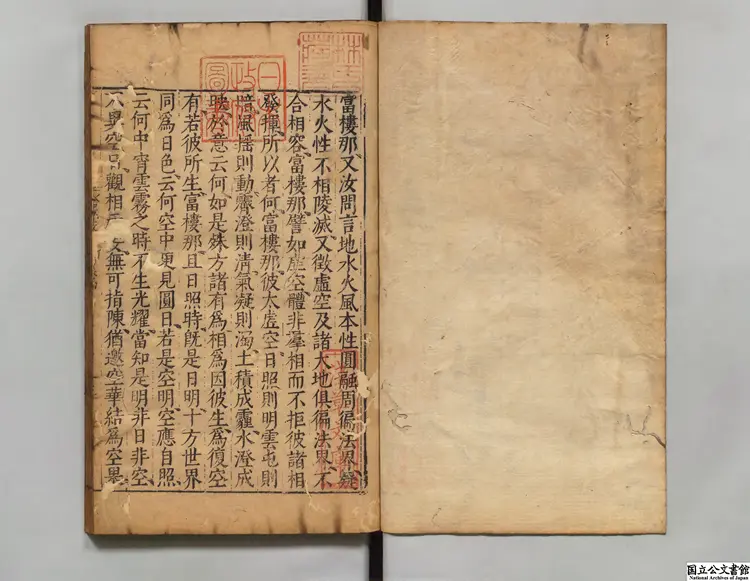 富樓那又汝問言地水火風本性圓融周徧法界疑
水火性不相陵滅又徵虛空及諸大地俱徧法界不
合相容富樓那譬如虛空體非羣相而不拒彼諸相
發揮所以者何富樓那彼太虛空日照則明雲屯則
暗風揺則動霽澄則清氣凝則濁土積成霾水澄成
映於意云何如是殊方諸有為相為因彼生為復空
有若彼所生富樓那且日照時旣是日明十方世界
同為日色云何空中更見圓日若是空明空應自照
云何中宵雲霧之時不生光耀當知是明非日非空
不異空日觀相 無可指陳猶邀空華結為空果
日 政 圖
国立公文書館
National Archives of Japan